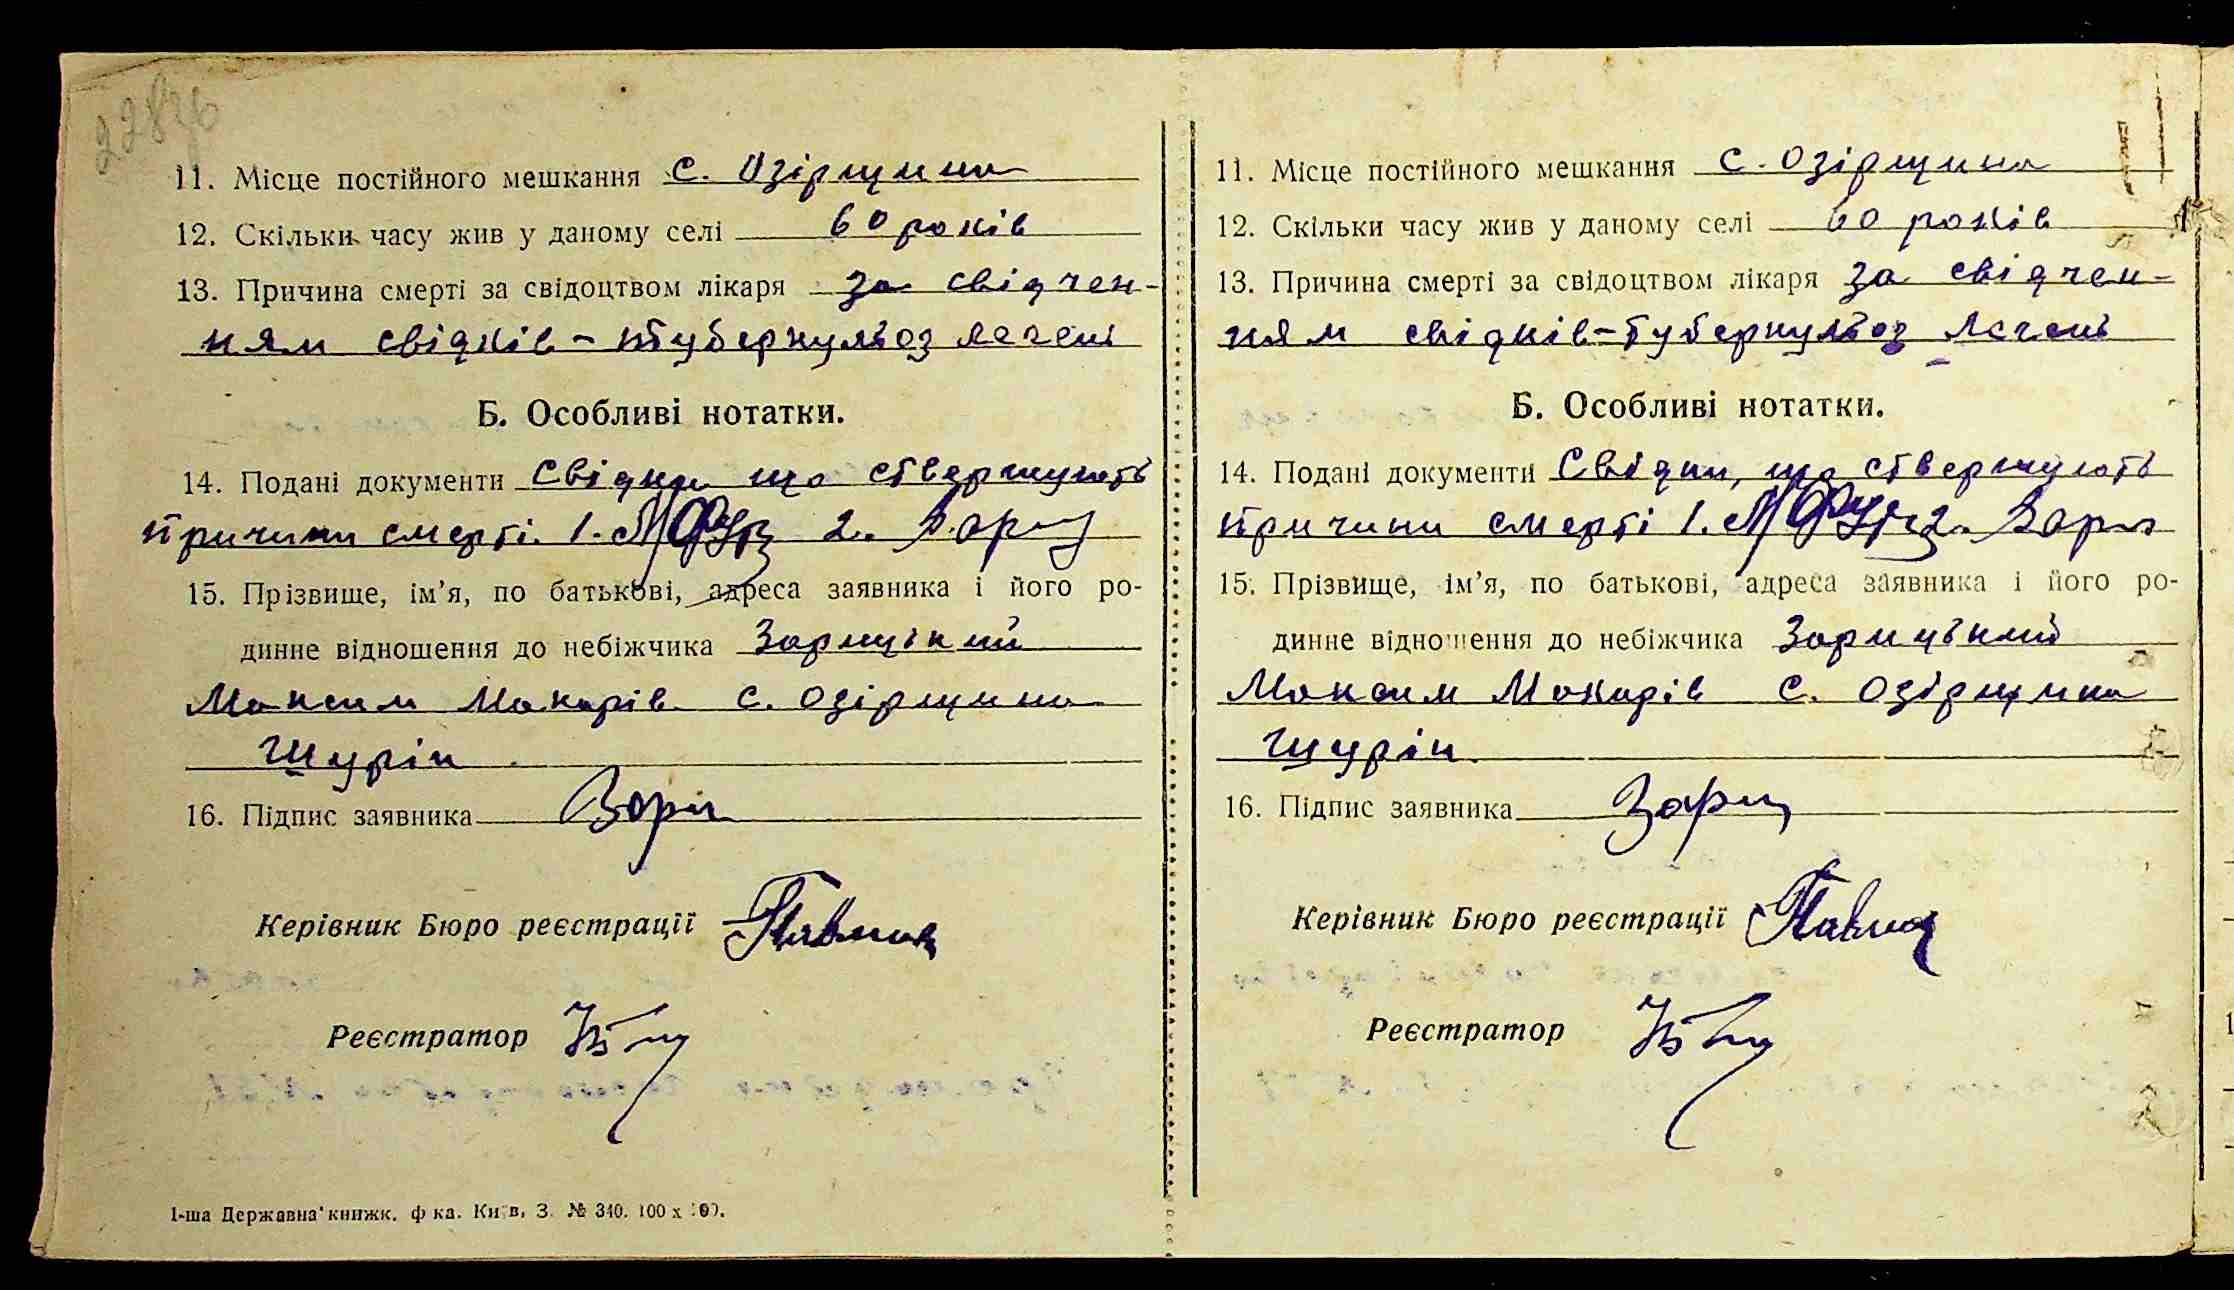 228
11. Місце постійного мешкання с. Озірщина
12. Скільки часу жив у даному селі 60 років
13. Причина смерті за свідоцтвом лікаря за свідчен-
ням свідків – туберкульоз легень
Б. Особливі нотатки.
14. Подані документи Свідки що ствержують
причини смерті. 1. 2.
15. Прізвище, ім’я, по батькові, адреса заявника і його ро-
динне відношення до небіжчика
Максим Макарів с. Озірщина
Шурін
16. Підпис заявника
Керівник Бюро реєстрації
Реєстратор
1-ша Державна книжк. ф-ка. Київ, З. № 340. 100 х
11. Місце постійного мешкання с. Озірщина
12. Скільки часу жив у даному селі 60 років
13. Причина смерті за свідоцтвом лікаря за свідчен-
ням свідків – туберкульоз легень
Б. Особливі нотатки.
14. Подані документи Свідки, що ствержують
причини смерті 1. 2.
15. Прізвище, ім’я, по батькові, адреса заявника і його ро-
динне відношення до небіжчика
Максим Макарів с. Озірщина
Шурін.
16. Підпис заявника
Керівник Бюро реєстрації
Реєстратор